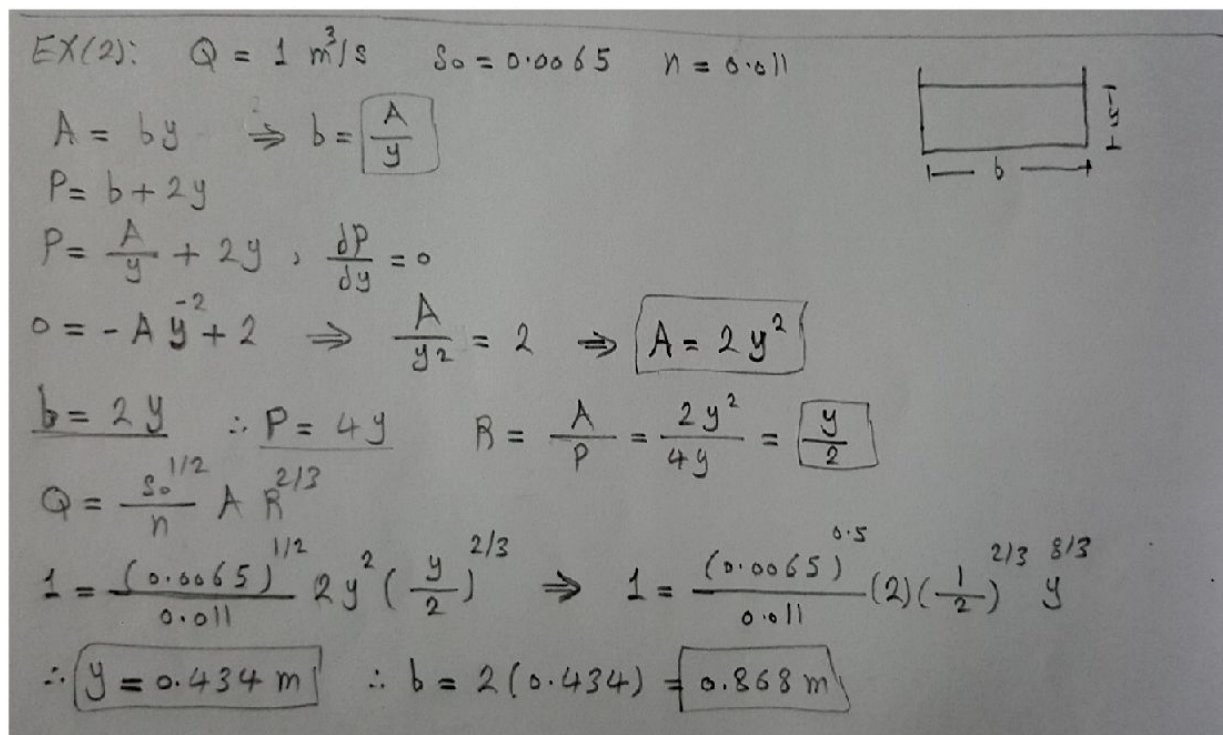 EX(2): Q = 1 m³/s S₀ = 0.0065 n = 0.011
A = by ⇒ b = A/y
y
b
P = b + 2y
P = A/y + 2y , dP/dy = 0
0 = - A y⁻² + 2 ⇒ A/y² = 2 ⇒ A = 2y²
b = 2y ∴ P = 4y R = A/P = 2y²/4y = y/2
Q = S₀^1/2/n A R^2/3
1 = (0.0065)^1/2/0.011 2y² (y/2)^2/3 ⇒ 1 = (0.0065)^0.5/0.011 (2)(1/2)^2/3 y^8/3
∴ y = 0.434 m ∴ b = 2(0.434) = 0.868 m